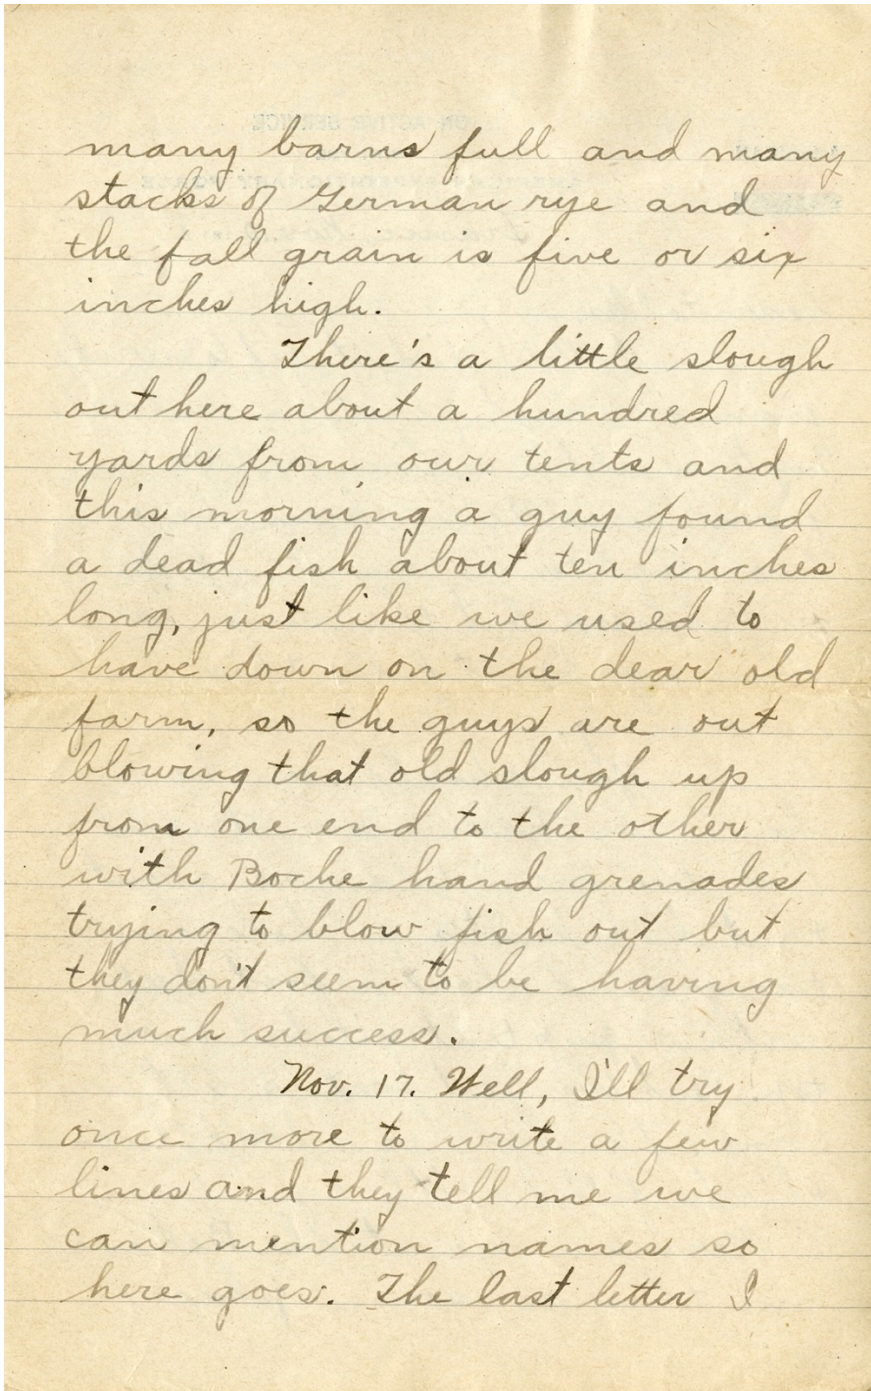 many barns full and many
stacks of German rye and
the fall grain is five or six
inches high.
There's a little slough
out here about a hundred
yards from our tents and
this morning a guy found
a dead fish about ten inches
long, just like we used to
have down on the dear old
farm, so the guys are out
blowing that old slough up
from one end to the other
with Boche hand grenades
trying to blow fish out but
they don't seem to be having
much success.
Nov. 17. Well, I'll try
once more to write a few
lines and they tell me we
can mention names so
here goes. The last letter I